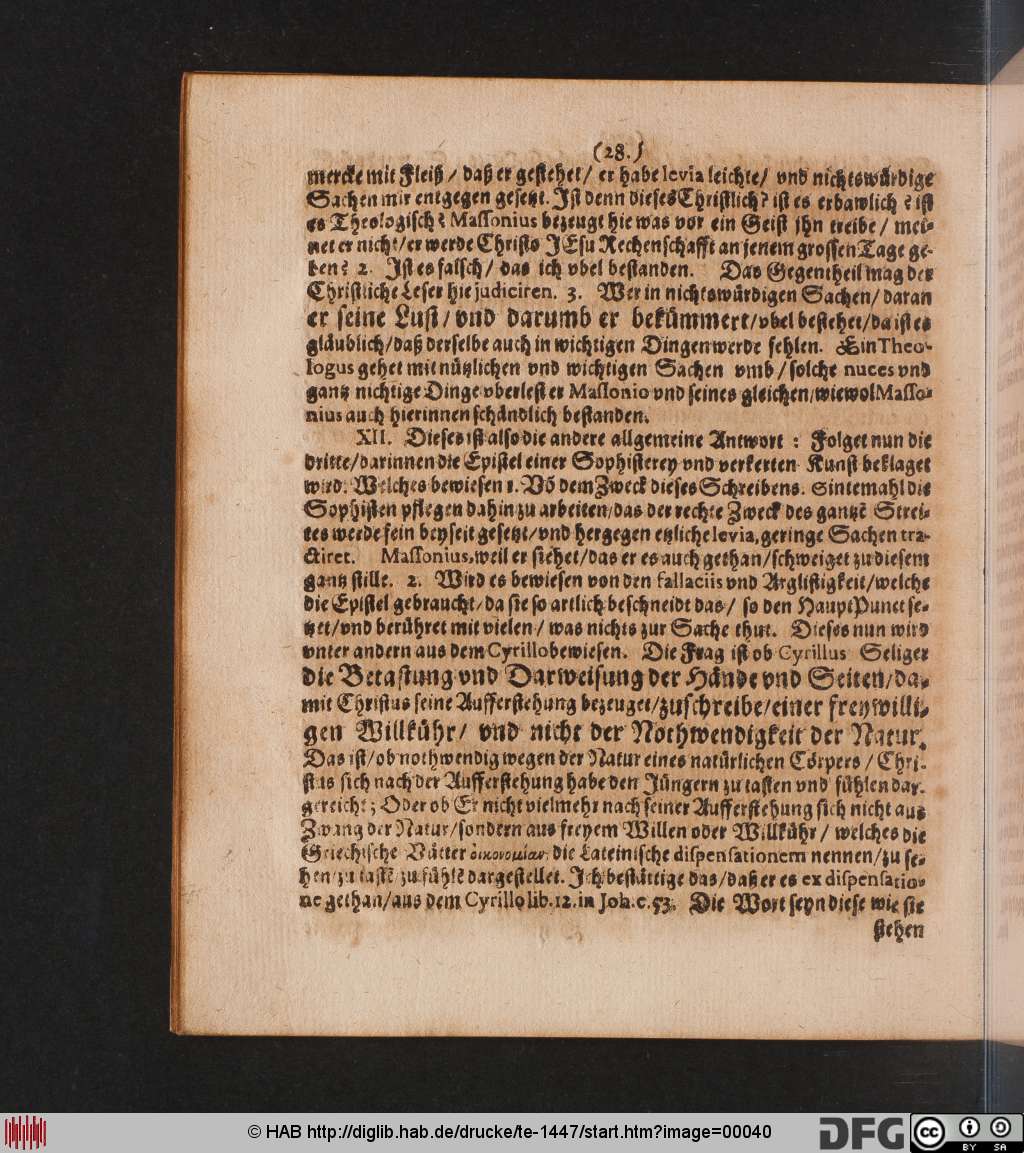 (28.)
mercke mit Fleiß / daß er gestehet / er habe levia leichte / vnd nichtswürdige
Sachen mir entgegen gesetzt. Ist denn dieses Christlich? ist es erbawlich? ist
es Theologisch? Massonius bezeugt hie was vor ein Geist jhn treibe / mei-
net er nicht / er werde Christo JEsu Rechenschafft an jenem grossen Tage ge-
ben? 2. Ist es falsch / das ich vbel bestanden. Das Gegentheil mag der
Christliche Leser hie judiciren. 3. Wer in nichtswürdigen Sachen / daran
er seine Lust / vnd darumb er bekümmert / vbel bestehet / da ist es
gläublich / daß derselbe auch in wichtigen Dingen werde fehlen. Ein Theo-
logus gehet mit nützlichen vnd wichtigen Sachen vmb / solche nuces vnd
gantz nichtige Dinge vberlest er Massonio vnd seines gleichen / wiewol Masso-
nius auch hierinnen schändlich bestanden.
XII. Dieses ist also die andere allgemeine Antwort : Folget nun die
dritte / darinnen die Epistel einer Sophisterey vnd verkerten Kunst beklaget
wird. Welches bewiesen 1. Võ dem Zweck dieses Schreibens. Sintemahl die
Sophisten pflegen dahin zu arbeiten / das der rechte Zweck des gantzẽ Strei-
tes werde fein beyseit gesetzt / vnd hergegen etzliche levia, geringe Sachen tra-
ctiret. Massonius, weil er siehet / das er es auch gethan / schweiget zu diesem
gantz stille. 2. Wird es bewiesen von den fallaciis vnd Arglistigkeit / welche
die Epistel gebraucht / da sie so artlich beschneidt das / so den HauptPunct se-
tzet / vnd berühret mit vielen / was nichts zur Sache thut. Dieses nun wird
vnter andern aus dem Cyrillo bewiesen. Die Frag ist ob Cyrillus Seliger
die Betastung vnd Darweisung der Hände vnd Seiten / da-
mit Christus seine Aufferstehung bezeuget / zuschreibe / einer freywilli-
gen Willkühr / vnd nicht der Nothwendigkeit der Natur.
Das ist / ob nothwendig wegen der Natur eines natürlichen Cörpers / Chri-
stus sich nach der Aufferstehung habe den Jüngern zu tasten vnd fühlen dar-
gereicht; Oder ob Er nicht vielmehr nach seiner Aufferstehung sich nicht aus
Zwang der Natur / sondern aus freyem Willen oder Willkühr / welches die
Griechische Vätter οἰκονομίαν, die Lateinische dispensationem nennen / zu se-
hen / zu tastẽ / zu fühlẽ dargestellet. Ich bestättige das / daß er es ex dispensatio-
ne gethan / aus dem Cyrillo lib. 12. in Joh. c. 53. Die Wort seyn diese wie sie
stehen
© HAB http://diglib.hab.de/drucke/te-1447/start.htm?image=00040
DFG
cc
BY SA